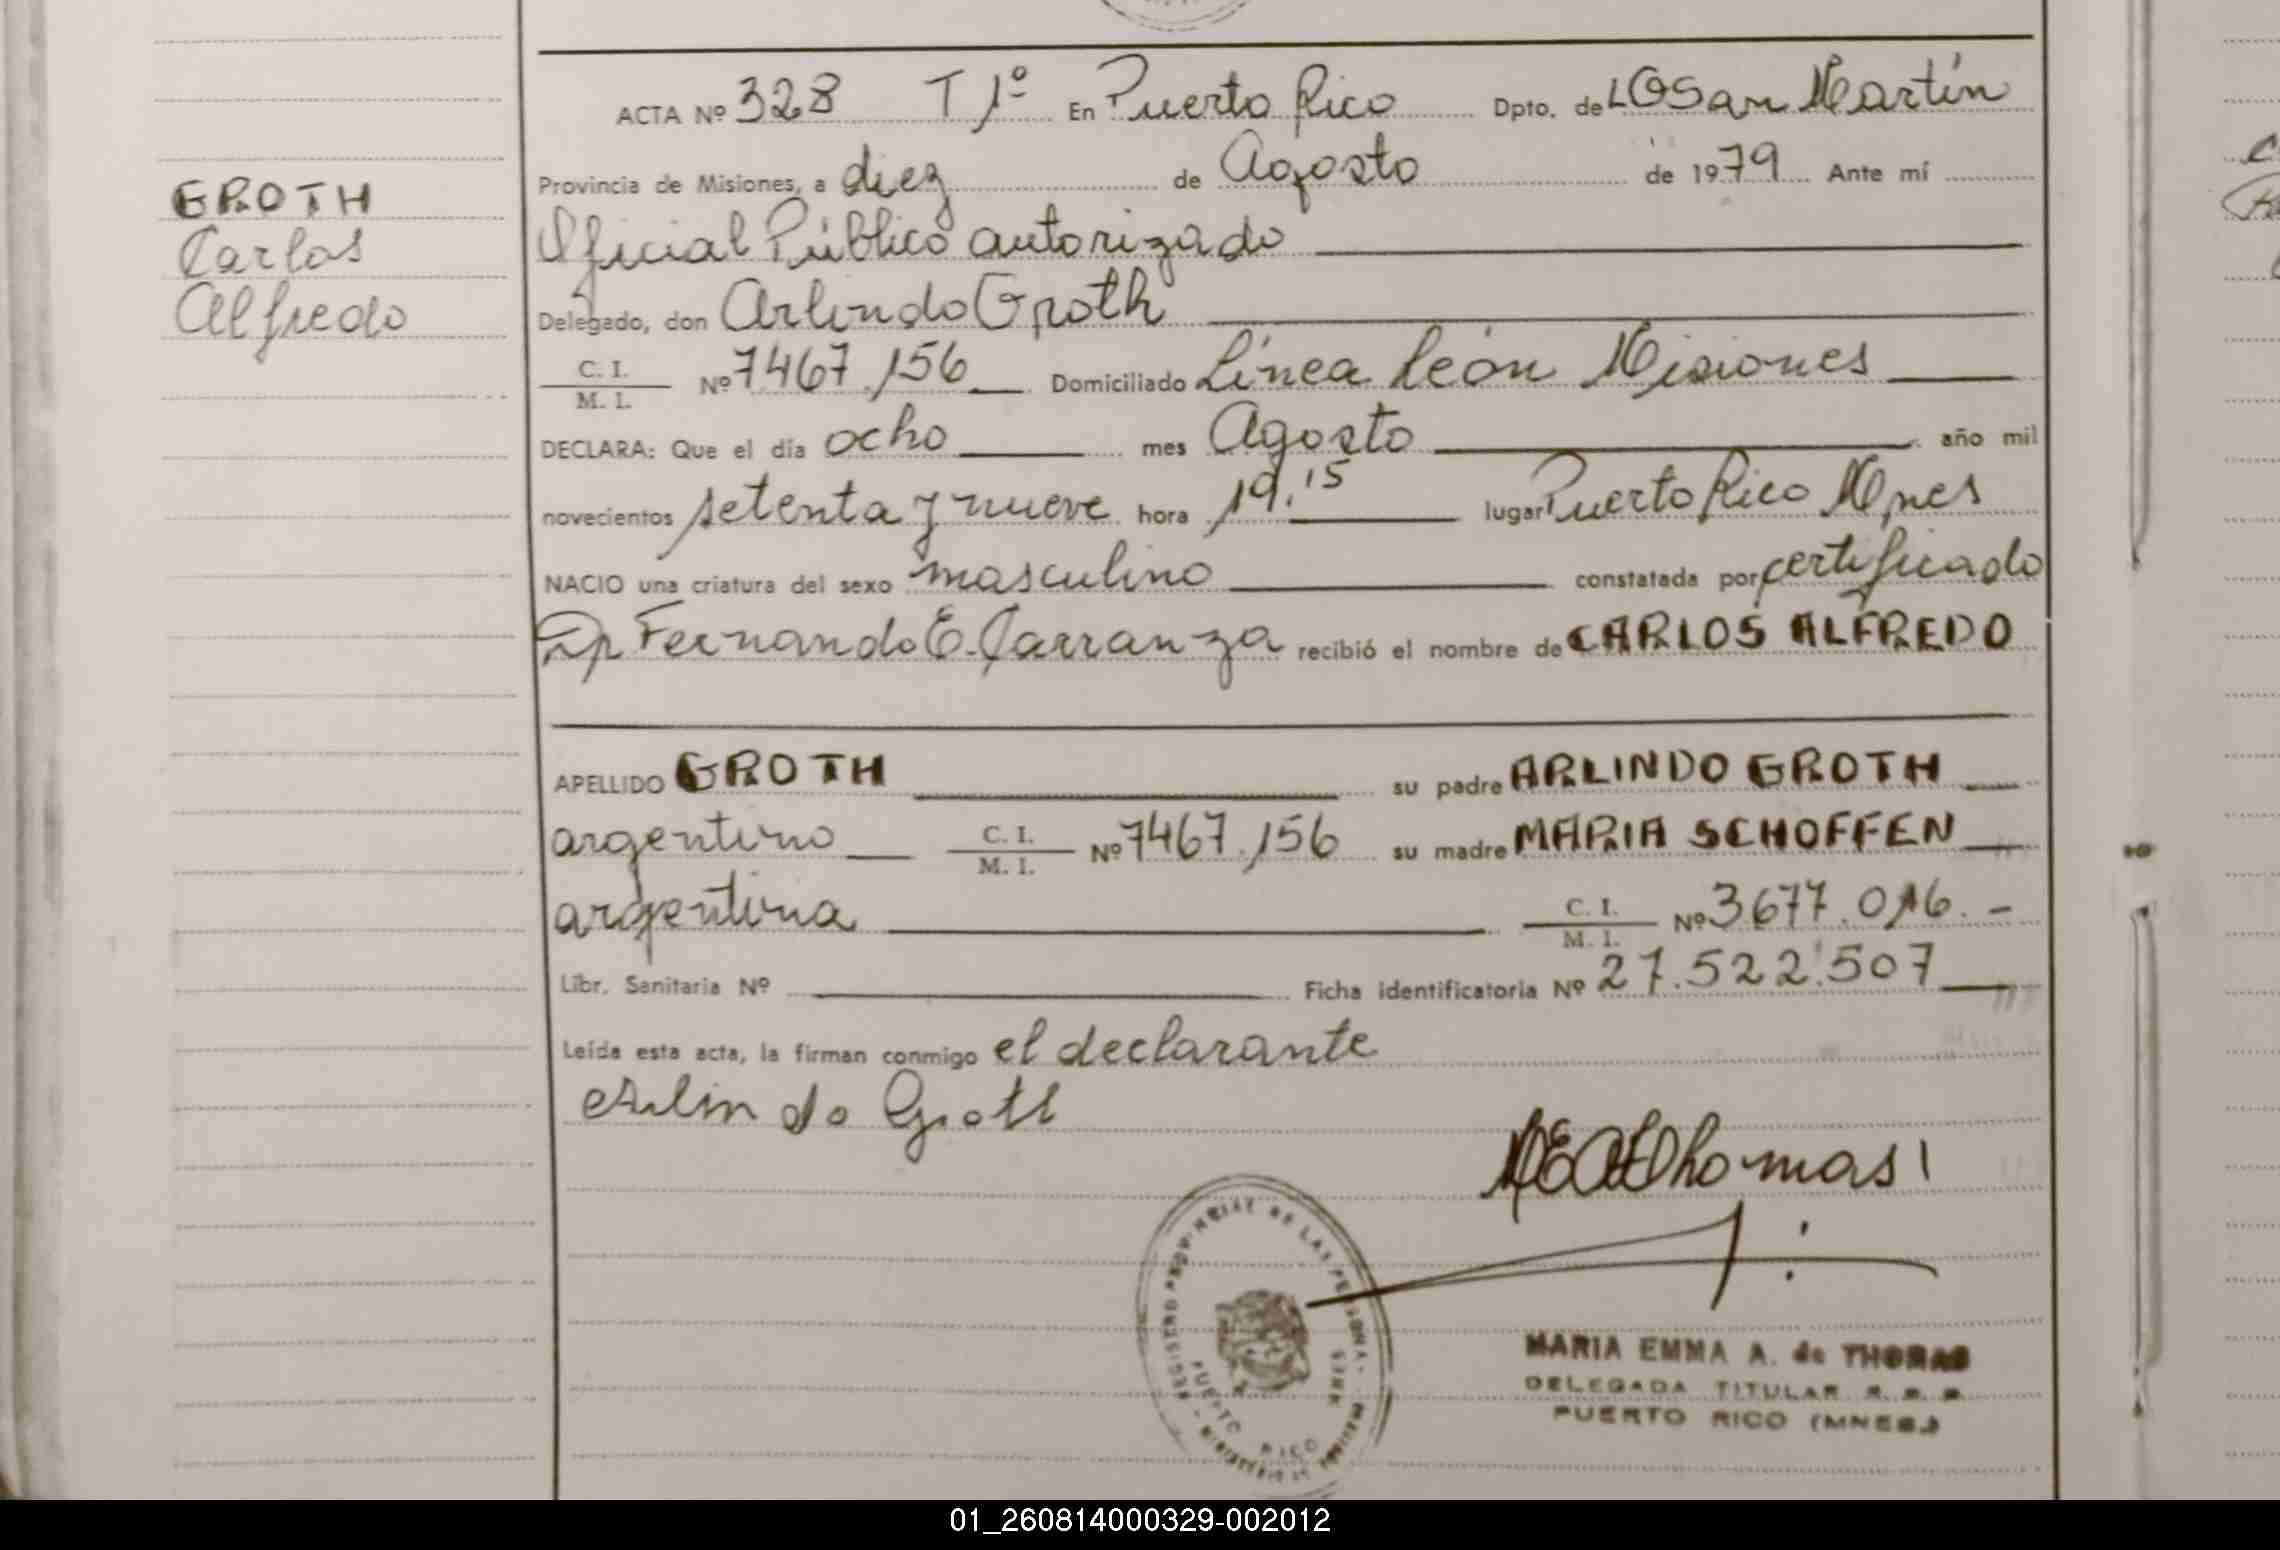 ACTA Nº 328 T 1º En Puerto Rico Dpto. de LGSan Martín
Provincia de Misiones, a diez de Agosto de 1979 Ante mí
GROTH
Carlos
Alfredo
Oficial Público autorizado
Delegado, don Arlindo Groth
C. I.
M. I.
Nº 7467.156 Domiciliado Línea León Misiones
DECLARA: Que el día ocho mes Agosto año mil
novecientos setenta y nueve hora 19.15 lugar Puerto Rico Mnes
NACIO una criatura del sexo masculino constatada por certificado
Dr Fernando E. Carranza recibió el nombre de CARLOS ALFREDO
APELLIDO GROTH su padre ARLINDO GROTH
argentino C. I.
M. I.
Nº 7467.156 su madre MARIA SCHOFFEN
argentina C. I.
M. I.
Nº 3677.016.-
Libr. Sanitaria Nº Ficha identificatoria Nº 27.522.507
Leída esta acta, la firman conmigo el declarante
Arlindo Groth
MEAThomas
REGISTRO PROVINCIAL DE LAS PERSONAS
PUERTO RICO
MNES
MARIA EMMA A. de THOMAS
DELEGADA TITULAR
PUERTO RICO (MNES.)
01_260814000329-002012